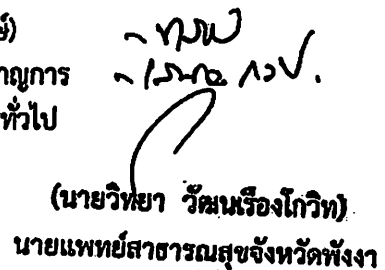 ษ์)
าญการ
ทั่วไป
- ทราบ
(นายวิทยา วัฒนเรืองโกวิท)
นายแพทย์สาธารณสุขจังหวัดพังงา